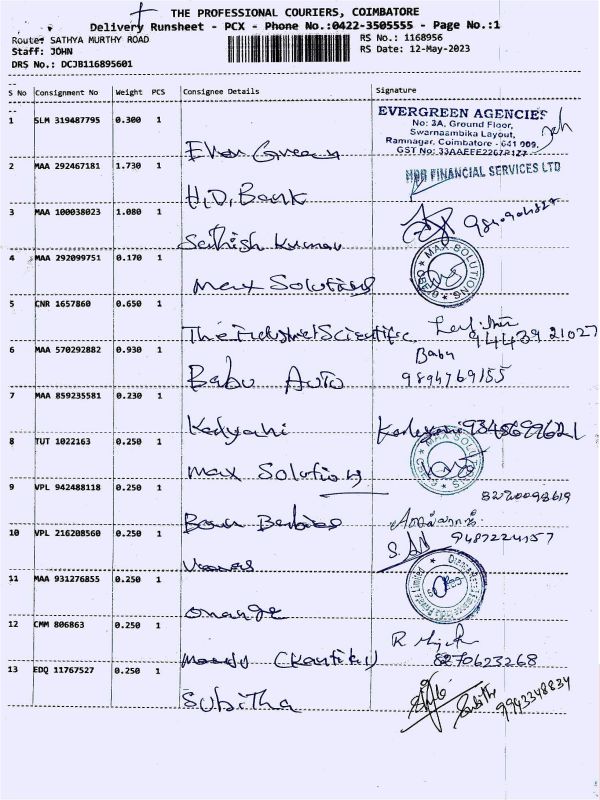 THE PROFESSIONAL COURIERS, COIMBATORE
Delivery Runsheet - PCX - Phone No.:0422-3505555 - Page No.:1
Route: SATHYA MURTHY ROAD
RS No.: 1168956
Staff: JOHN
RS Date: 12-May-2023
DRS No.: DCJB116895601
S No Consignment No Weight PCS Consignee Details Signature
1 SLM 319487795 0.300 1
EVERGREEN AGENCIES
No: 3A, Ground Floor,
Swarnaambika Layout,
Ramnagar, Coimbatore - 641 009.
Ever Green
2 MAA 292467181 1.730 1
HDB FINANCIAL SERVICES LTD
H.D. Bank
3 MAA 100038023 1.080 1
Sathish Kumar
4 MAA 292099751 0.170 1
MAX SOLUTIONS
Max Solutions
5 CNR 1657860 0.650 1
The Industrial Scientific
94439 21027
6 MAA 570292882 0.930 1
Babu
Babu Auto
9894769155
7 MAA 859235581 0.230 1
Kalyani
8 TUT 1022163 0.250 1
MAX SOLUTIONS
Max Solutions
9 VPL 942488118 0.250 1
8270098619
10 VPL 216208560 0.250 1
9487224157
11 MAA 931276855 0.250 1
Orange
12 CMM 806863 0.250 1
8270623268
13 EDQ 11767527 0.250 1
Subitha
9943348834